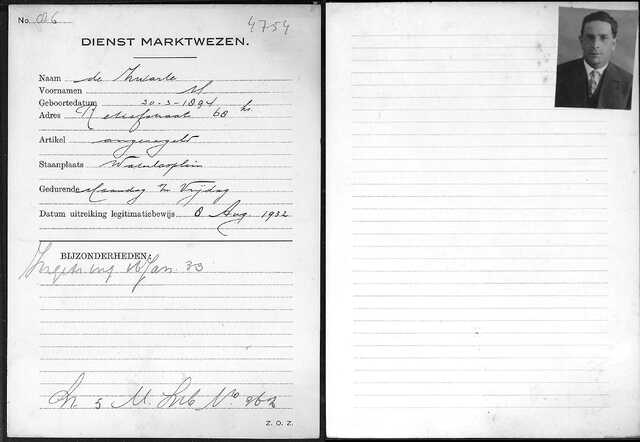 No. 06
4754
DIENST MARKTWEZEN.
Naam de Zwarte
Voornamen M
Geboortedatum 20-3-1894
Adres Retiefstraat 68 hs.
Artikel ongeregeld
Staanplaats Waterlooplein
Gedurende Maandag t/m Vrijdag
Datum uitreiking legitimatiebewijs 8 Aug. 1932
BIJZONDERHEDEN:
Jan. 33
M. No 962
Z. O. Z.